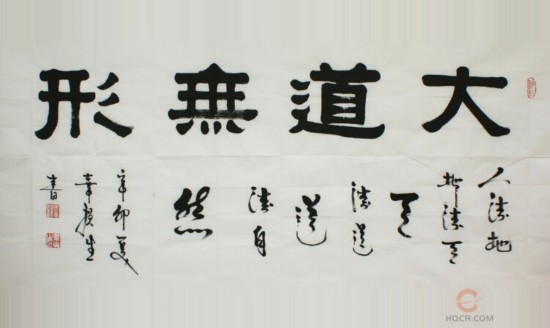 大道無形
人法地
地法天
天
法道
道
法自
然
辛卯夏
生
書
HQCR.COM